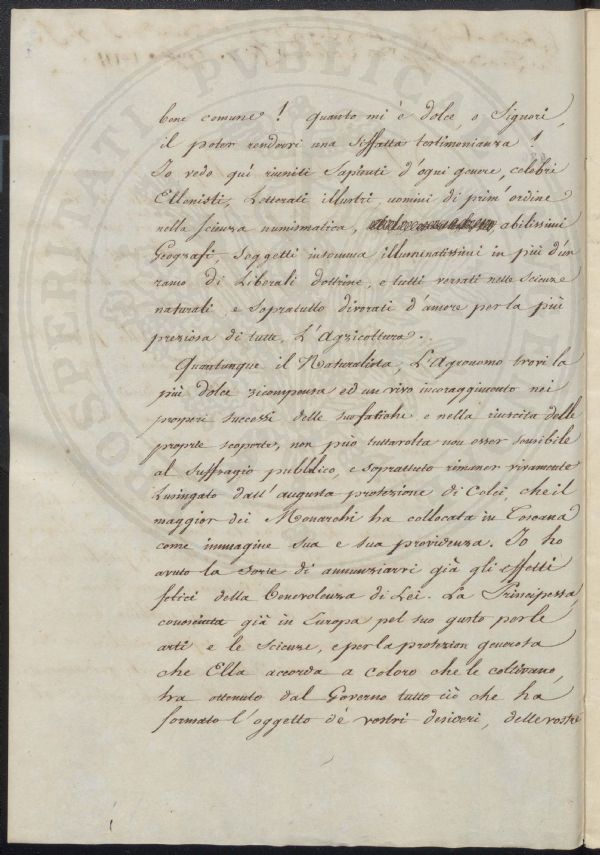 bene comune! Quanto mi è dolce, o Signori,
il poter rendervi una siffatta testimonianza!
Io vedo quì riuniti Sapienti d'ogni genere, celebri
Ellenisti, Letterati illustri, uomini di prim'ordine
nella scienza numismatica, abilissimi
Geografi, Soggetti insomma illuminatissimi in più d'un
ramo di Liberali dottrine, e tutti versati nelle Scienze
naturali, e sopratutto divorati d'amore per la più
preziosa di tutte, L'Agricoltura.
Quantunque il Naturalista, L'Agronomo trovi la
più dolce ricompensa ed un vivo incoraggimento nei
prosperi successi delle sue fatiche e nella riuscita delle
proprie scoperte, non può tuttavolta non esser sensibile
al suffragio pubblico, e soprattutto rimaner vivamente
Lusingato dall'augusta protezione di Colei, che il
maggior dei Monarchi ha collocata in Toscana
come immagine sua e sua providenza. Io ho
avuto la sorte di annunziarvi già gli effetti
felici della benevolenza di Lei. La Principessa,
conosciuta già in Europa pel suo gusto per le
arti e le Scienze, e per la protezion generosa
che Ella accorda a coloro che le coltivano,
ha ottenuto dal Governo tutto ciò che ha
formato l'oggetto de' vostri desideri, delle vostre
PROSPERITATI PUBLICAE